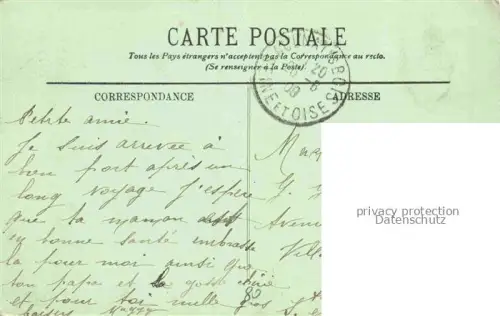 CARTE POSTALE
Tous les Pays étrangers n'acceptent pas la Correspondance au recto.
(Se renseigner à la Poste).
CORRESPONDANCE
ADRESSE
Petite amie.
Je suis arrevée à
bon port après un
long voyage J'espère
que ta maman est
en bonne santé embrasse
la pour moi ainsi que
ton papa et
et pour toi mille
baisers
privacy protection
Datenschutz
SEINE ET OISE
20
80